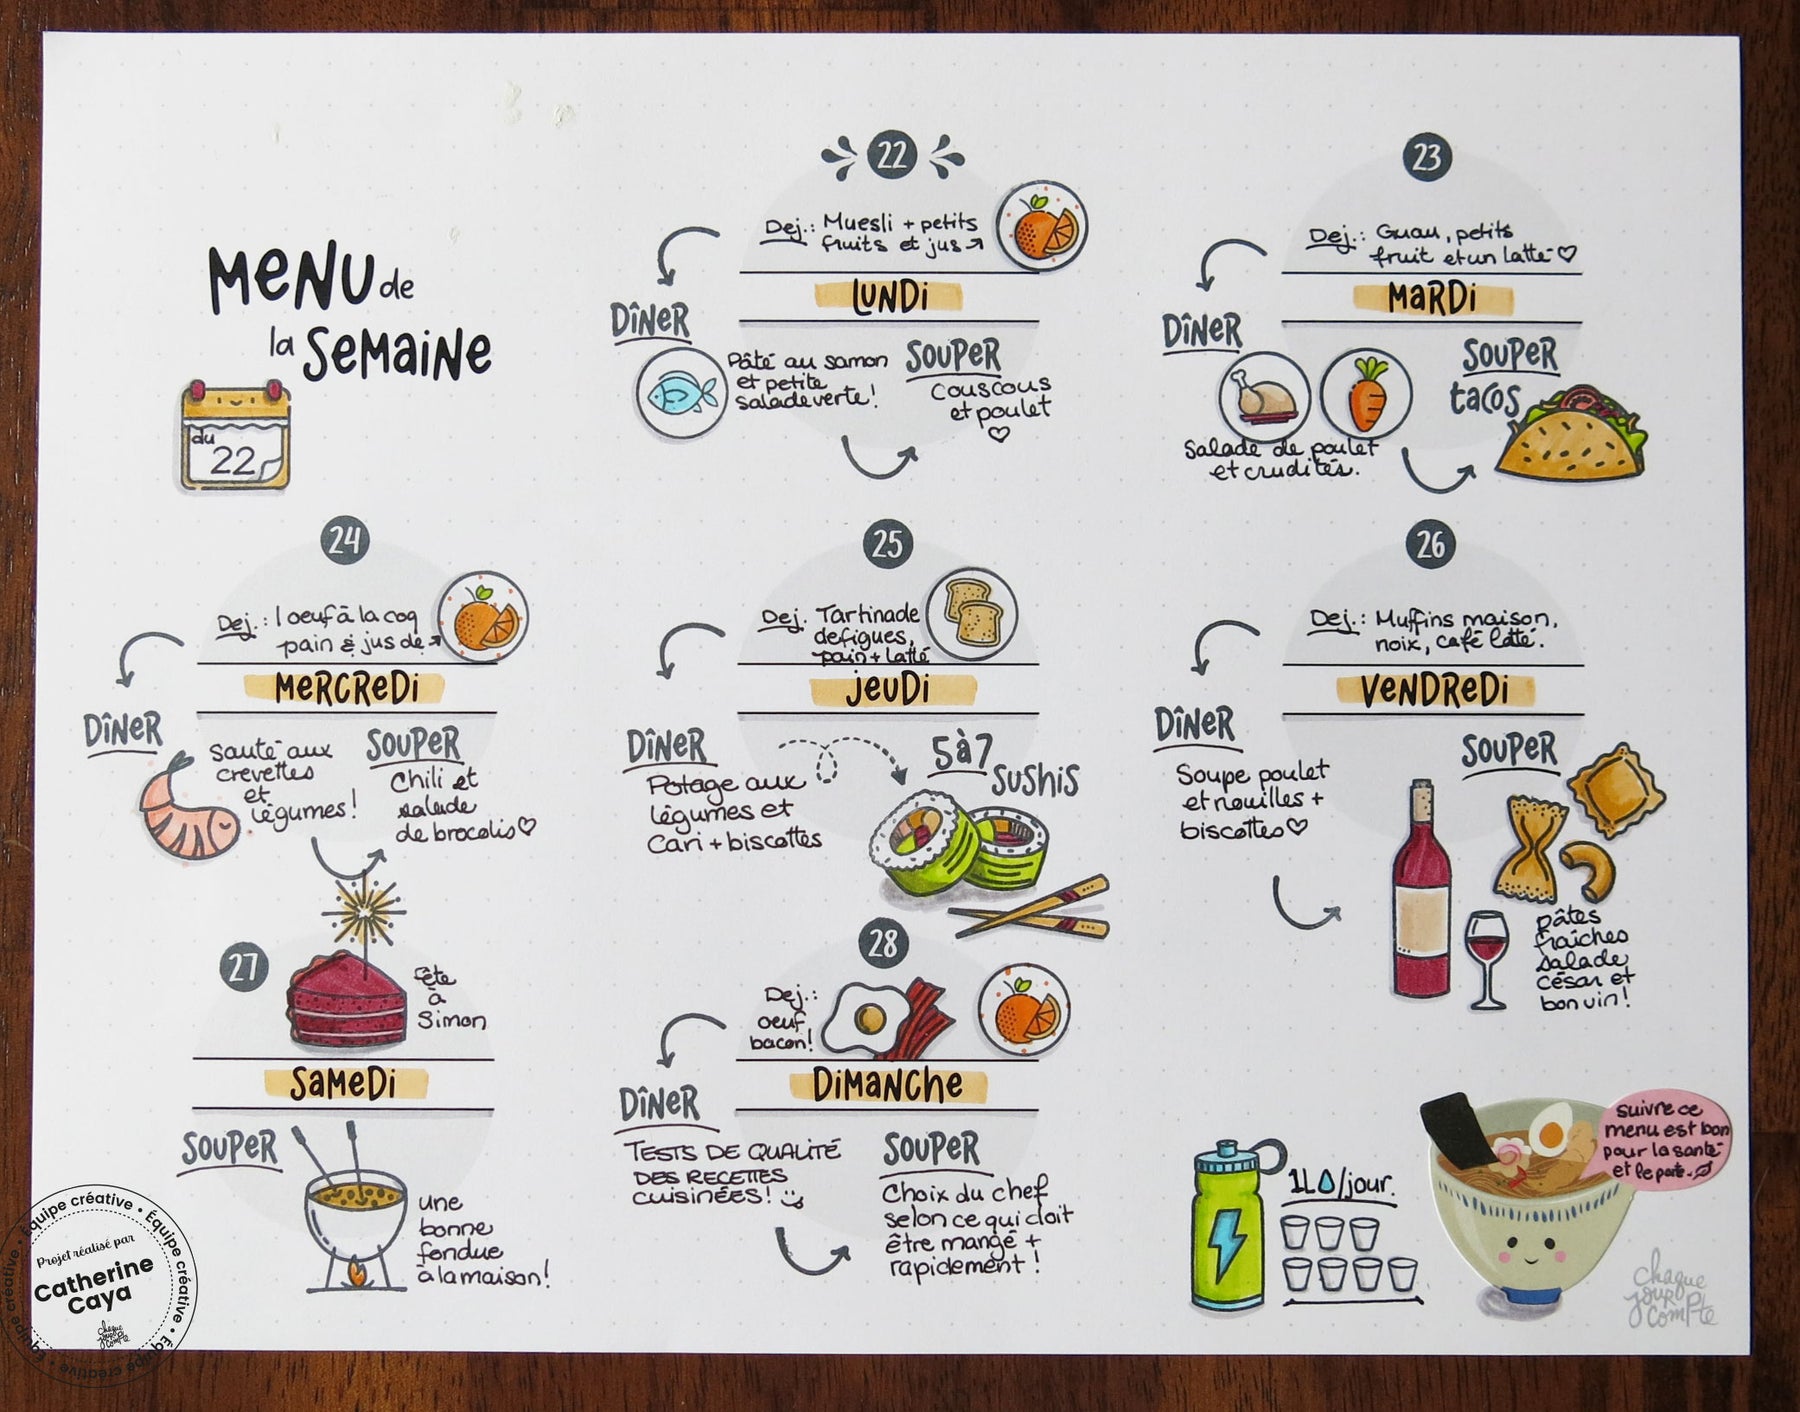 MENU de
la SEMAINE
du
22
22
Dej.: Muesli + petits
fruits et jus
LUNDI
DÎNER
Pâté au samon
et petite
salade verte!
SOUPER
Couscous
et poulet
23
Dej.: Gruau, petits
fruit et un latté
MARDI
DÎNER
Salade de poulet
et crudités.
SOUPER
tacos
24
Dej.: 1 oeuf à la coq
pain & jus de
MERCREDI
DÎNER
Sauté aux
crevettes
et
légumes!
SOUPER
Chili et
salade
de brocolis
25
Dej. Tartinade
de figues,
pain + latté
JEUDI
DÎNER
Potage aux
légumes et
Cari + biscottes
5 à 7
SUSHIS
26
Dej.: Muffins maison,
noix, café latté.
VENDREDI
DÎNER
Soupe poulet
et nouilles +
biscottes
SOUPER
pâtes
fraîches
salade
césar et
bon vin!
27
Fête
à
Simon
SAMEDI
SOUPER
une
bonne
fondue
à la maison!
28
Dej.:
oeuf
bacon!
DIMANCHE
DÎNER
TESTS DE QUALITÉ
DES RECETTES
CUISINÉES!
SOUPER
Choix du chef
selon ce qui doit
être mangé +
rapidement!
1L/jour.
suivre ce
menu est bon
pour la santé
et le
chaque
jour
compte
Équipe créative • Équipe créative • Équipe créative • Équipe créative •
Projet réalisé par
Catherine
Caya
chaque
jour
compte